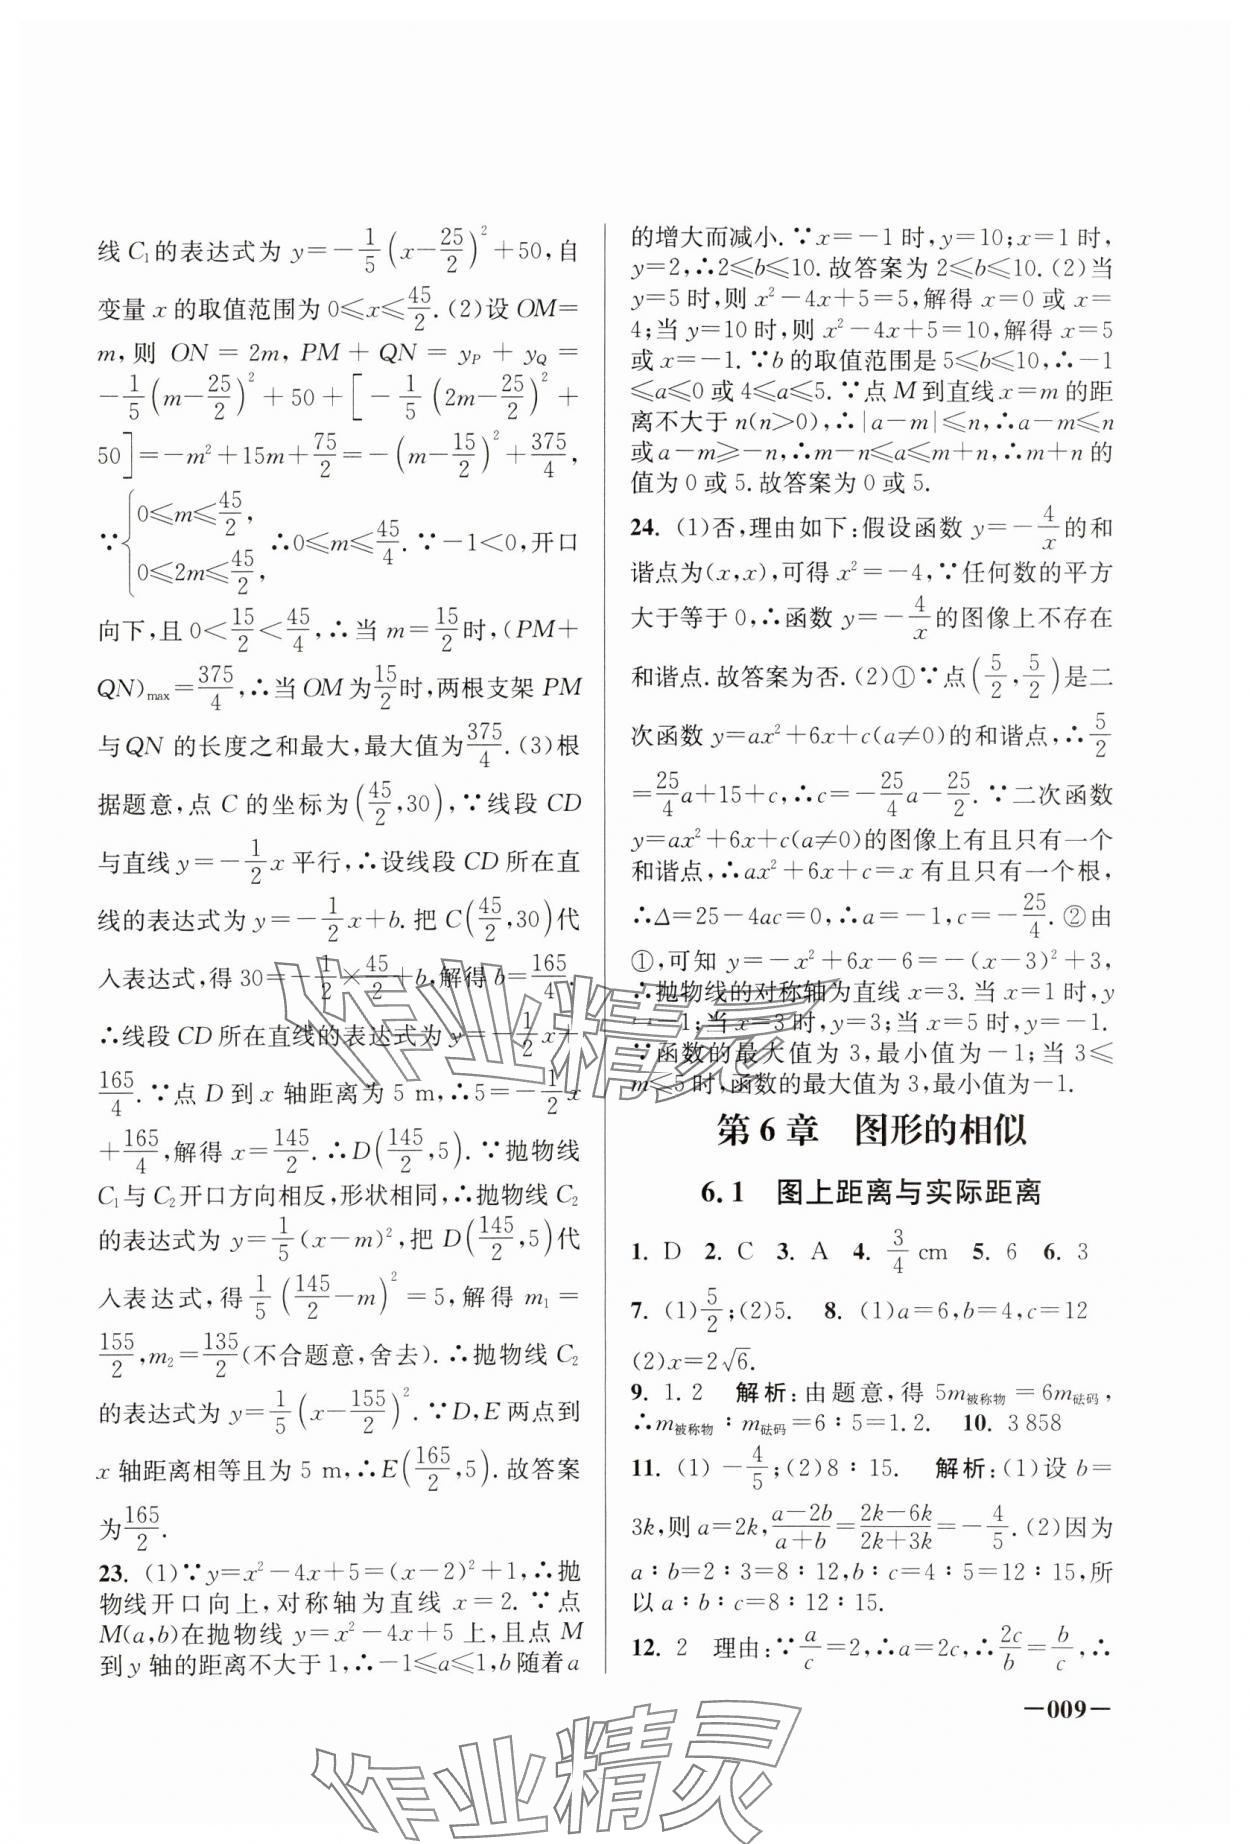 线 C₁的表达式为 y=-1/5(x-25/2)²+50,自
变量 x 的取值范围为 0≤x≤45/2.(2)设 OM=
m,则 ON=2m,PM+QN=y_P+y_Q=
-1/5(m-25/2)²+50+[-1/5(2m-25/2)²+
50]=-m²+15m+75/2=-(m-15/2)²+375/4,
∵{0≤m≤45/2, 0≤2m≤45/2, ∴0≤m≤45/4.∵-1<0,开口
向下,且 0<15/2<45/4,∴当 m=15/2时,(PM+
QN)max=375/4,∴当OM为15/2时,两根支架 PM
与QN 的长度之和最大,最大值为375/4.(3)根
据题意,点 C 的坐标为(45/2,30),∵线段 CD
与直线 y=-1/2x 平行,∴设线段 CD 所在直
线的表达式为 y=-1/2x+b.把 C(45/2,30)代
入表达式,得 30=-1/2×45/2+b,解得 b=165/4.
∴线段 CD 所在直线的表达式为 y=-1/2x+
165/4.∵点 D 到 x 轴距离为 5 m,∴5=-1/2x
+165/4,解得 x=145/2.∴D(145/2,5).∵抛物线
C₁与 C₂开口方向相反,形状相同,∴抛物线 C₂
的表达式为 y=1/5(x-m)²,把 D(145/2,5)代
入表达式,得 1/5(145/2-m)²=5,解得 m₁=
155/2,m₂=135/2(不合题意,舍去).∴抛物线 C₂
的表达式为 y=1/5(x-155/2)².∵D,E 两点到
x 轴距离相等且为 5 m,∴E(165/2,5).故答案
为165/2.
23. (1)∵y=x²-4x+5=(x-2)²+1,∴抛
物线开口向上,对称轴为直线 x=2.∵点
M(a,b)在抛物线 y=x²-4x+5 上,且点 M
到 y 轴的距离不大于 1,∴-1≤a≤1,b 随着 a
的增大而减小.∵x=-1 时,y=10;x=1 时,
y=2,∴2≤b≤10.故答案为 2≤b≤10.(2)当
y=5 时,则 x²-4x+5=5,解得 x=0 或 x=
4;当 y=10 时,则 x²-4x+5=10,解得 x=5
或 x=-1.∵b 的取值范围是 5≤b≤10,∴-1
≤a≤0 或 4≤a≤5.∵点 M 到直线 x=m 的距
离不大于 n(n>0),∴|a-m|≤n,∴a-m≤n
或 a-m≥-n,∴m-n≤a≤m+n,∴m+n 的
值为 0 或 5.故答案为 0 或 5.
24. (1)否,理由如下:假设函数 y=-4/x的和
谐点为(x,x),可得 x²=-4,∵任何数的平方
大于等于 0,∴函数 y=-4/x的图像上不存在
和谐点.故答案为否.(2)①∵点(5/2,5/2)是二
次函数 y=ax²+6x+c(a≠0)的和谐点,∴5/2
=25/4a+15+c,∴c=-25/4a-25/2.∵二次函数
y=ax²+6x+c(a≠0)的图像上有且只有一个
和谐点,∴ax²+6x+c=x 有且只有一个根,
∴Δ=25-4ac=0,∴a=-1,c=-25/4.②由
①,可知 y=-x²+6x-6=-(x-3)²+3,
∴抛物线的对称轴为直线 x=3.当 x=1 时,y
=-1;当 x=3 时,y=3;当 x=5 时,y=-1.
∵函数的最大值为 3,最小值为-1;当 3≤
m≤5 时,函数的最大值为 3,最小值为-1.
第 6 章 图形的相似
6.1 图上距离与实际距离
1. D 2. C 3. A 4. 3/4 cm 5. 6 6. 3
7. (1)5/2;(2)5. 8. (1)a=6,b=4,c=12
(2)x=2√6.
9. 1.2 解析:由题意,得 5m被称物=6m砝码,
∴m被称物∶m砝码=6∶5=1.2. 10. 3 858
11. (1)-4/5;(2)8∶15. 解析:(1)设 b=
3k,则 a=2k,(a-2b)/(a+b)=(2k-6k)/(2k+3k)=-4/5.(2)因为
a∶b=2∶3=8∶12,b∶c=4∶5=12∶15,所
以 a∶b∶c=8∶12∶15.
12. 2 理由:∵a/c=2,∴a=2c,∴2c/b=b/c,∴
—009—
作业精灵
作业精灵